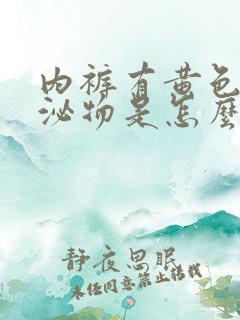 内裤有黄色
泌物是怎麽
静夜思眠
未经同意禁止转载